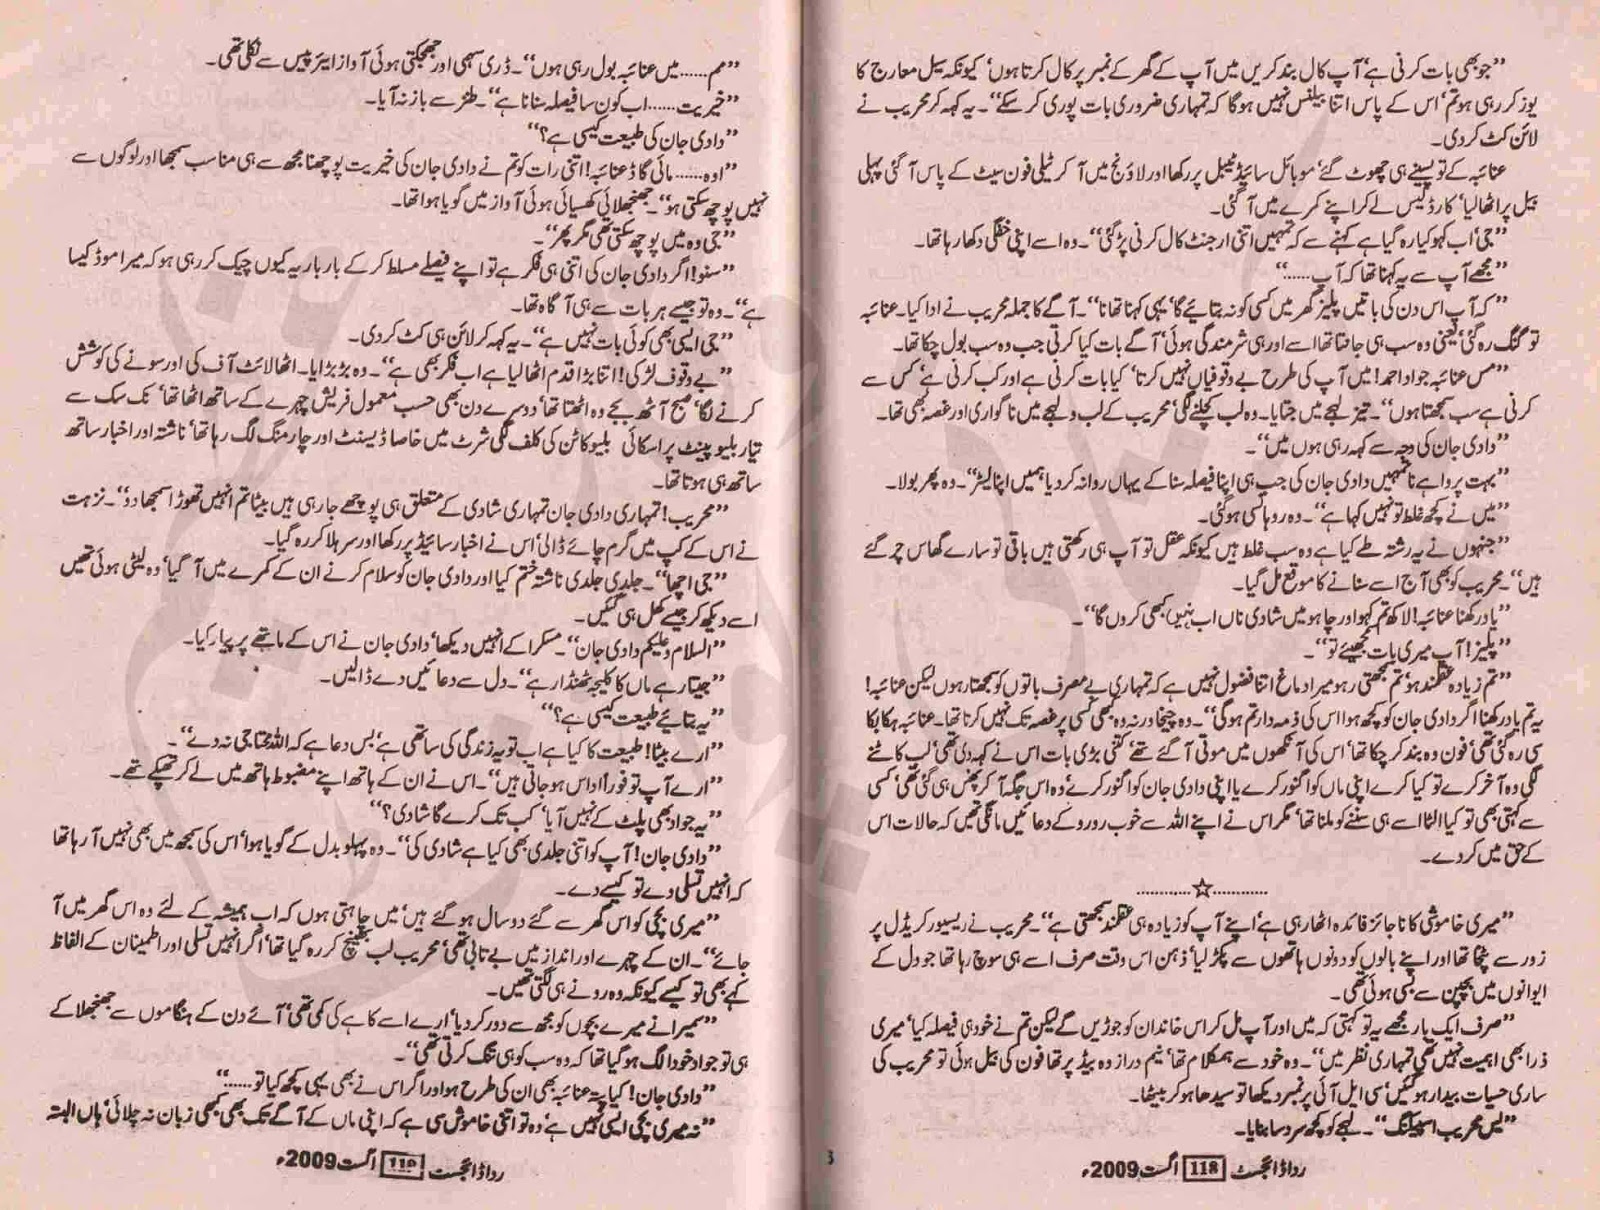 ”جو بھی بات کرنی ہے‘ آپ کال بند کریں میں آپ کے گھر کے نمبر پر کال کرتا ہوں‘ کیونکہ سیل معارج کا
یوز کر رہی ہو تم‘ اس کے پاس اتنا بیلنس نہیں ہوگا کہ تمہاری ضروری بات پوری کر سکے“۔ یہ کہہ کر محریب نے
لائن کٹ کر دی۔
عنائبہ کے تو پسینے ہی چھوٹ گئے‘ موبائل سائیڈ ٹیبل پر رکھا اور لاؤنج میں آ کر ٹیلی فون سیٹ کے پاس آ گئی پہلی
بیل پر اٹھا لیا‘ کارڈلیس لے کر اپنے کمرے میں آ گئی۔
”جی‘ اب کہو کیا رہ گیا ہے کہنے سے کہ تمہیں اتنی ارجنٹ کال کرنی پڑ گئی“۔ وہ اسے اپنی خفگی دکھا رہا تھا۔
”مجھے آپ سے یہ کہنا تھا کہ آپ......“
”کہ آپ اس دن کی باتیں پلیز گھر میں کسی کو نہ بتائیے گا‘ یہی کہنا تھا نا“۔ آگے کا جملہ محریب نے ادا کیا۔ عنائبہ
تو گنگ رہ گئی‘ یعنی وہ سب ہی جانتا تھا اسے اور ہی شرمندگی ہوئی‘ آگے بات کیا کرتی جب وہ سب بول چکا تھا۔
”مس عنائبہ جواد احمد! میں آپ کی طرح بے وقوفیاں نہیں کرتا‘ کیا بات کرنی ہے اور کب کرنی ہے‘ کس سے
کرنی ہے سب سمجھتا ہوں“۔ تیز لہجے میں جتایا۔ وہ لب کچلنے لگی‘ محریب کے لب و لہجے میں ناگواری اور غصہ بھی تھا۔
”دادی جان کی وجہ سے کہہ رہی ہوں میں“۔
”بہت پروا ہے نا تمہیں دادی جان کی جب ہی اپنا فیصلہ سنا کے یہاں روانہ کر دیا‘ ہمیں اپنا لیٹر“۔ وہ پھر بولا۔
”میں نے کچھ غلط تو نہیں کہا ہے“۔ وہ روہانسی ہوگئی۔
”جنہوں نے یہ رشتہ طے کیا ہے وہ سب غلط ہیں کیونکہ عقل تو آپ ہی رکھتی ہیں باقی تو سارے گھاس چر گئے
ہیں“۔ محریب کو بھی آج اسے سنانے کا موقع مل گیا۔
”یاد رکھنا عنائبہ! لاکھ تم کہو اور چاہو میں شادی ناں اب نہیں کبھی کروں گا“۔
”پلیز! آپ میری بات سمجھیئے تو“۔
”تم زیادہ عقلمند ہو‘ تم سمجھتی رہو میرا دماغ اتنا فضول نہیں ہے کہ تمہاری بے مصرف باتوں کو سمجھتا رہوں لیکن عنائبہ!
یہ تم یاد رکھنا اگر دادی جان کو کچھ ہوا اس کی ذمہ دار تم ہوگی“۔ وہ چیخا ورنہ وہ کبھی کسی پر غصہ تک نہیں کرتا تھا۔ عنائبہ ہکا بکا
سی رہ گئی تھی‘ فون وہ بند کر چکا تھا‘ اس کی آنکھوں میں موتی آ گئے تھے‘ کتنی بڑی بات اس نے کہہ دی تھی‘ لب کاٹنے
لگی وہ آخر کرے تو کیا کرے اپنی ماں کو اگنور کرے یا اپنی دادی جان کو اگنور کرے‘ وہ اس جگہ آ کر پھنس ہی گئی تھی‘ کسی
سے کہتی بھی تو کیا الٹا اسے ہی سننے کو ملنا تھا‘ مگر اس نے اپنے اللہ سے خوب رو رو کے دعائیں مانگی تھیں کہ حالات اس
کے حق میں کر دے۔
............☆............
”میری خاموشی کا ناجائز فائدہ اٹھا رہی ہے‘ اپنے آپ کو زیادہ ہی عقلمند سمجھتی ہے“۔ محریب نے ریسیور کریڈل پر
زور سے پٹخا تھا اور اپنے بالوں کو دونوں ہاتھوں سے پکڑ لیا‘ ذہن اس وقت صرف اسے ہی سوچ رہا تھا جو دل کے
ایوانوں میں بچپن سے بسی ہوئی تھی۔
”صرف ایک بار مجھے یہ تو کہتی کہ میں اور آپ مل کر اس خاندان کو جوڑیں گے لیکن تم نے خود ہی فیصلہ کیا‘ میری
ذرا بھی اہمیت نہیں تھی تمہاری نظر میں“۔ وہ خود سے ہمکلام تھا‘ نیم دراز وہ بیڈ پر تھا فون کی بیل ہوئی تو محریب کی
ساری حسیات بیدار ہوگئیں‘ سی ایل آئی پر نمبر دیکھا تو سیدھا ہو کر بیٹھا۔
”یس محریب اسپیکنگ“۔ لہجے کو کچھ سرد سا بنایا۔
ردا ڈائجسٹ 118 اگست 2009ء
”مم...... میں عنائبہ بول رہی ہوں“۔ ڈری سہمی اور جھجکتی ہوئی آواز ایئر پیس سے نکلی تھی۔
”خیریت...... اب کون سا فیصلہ سنانا ہے“۔ طنز سے باز نہ آیا۔
”دادی جان کی طبیعت کیسی ہے؟“
”اوہ...... مائی گاڈ عنائبہ! اتنی رات کو تم نے دادی جان کی خیریت پوچھنا مجھ سے ہی مناسب سمجھا اور لوگوں سے
نہیں پوچھ سکتی ہو“۔ جھنجھلائی کھسیائی ہوئی آواز میں گویا ہوا تھا۔
”جی وہ میں پوچھ سکتی تھی مگر پھر“۔
”سنو! اگر دادی جان کی اتنی ہی فکر ہے تو اپنے فیصلے مسلط کر کے بار بار یہ کیوں چیک کر رہی ہو کہ میرا موڈ کیسا
ہے“۔ وہ تو جیسے ہر بات سے ہی آگاہ تھا۔
”جی ایسی بھی کوئی بات نہیں ہے“۔ یہ کہہ کر لائن ہی کٹ کر دی۔
”بے وقوف لڑکی! اتنا بڑا قدم اٹھا لیا ہے اب فکر بھی ہے“۔ وہ بڑبڑایا۔ اٹھا لائٹ آف کی اور سونے کی کوشش
کرنے لگا‘ صبح آٹھ بجے وہ اٹھتا تھا‘ دوسرے دن بھی حسب معمول فریش چہرے کے ساتھ اٹھا تھا‘ تک سک سے
تیار بلیو پینٹ پر اسکائی بلیو کاٹن کی کلف لگی شرٹ میں خاصا ڈیسنٹ اور چارمنگ لگ رہا تھا‘ ناشتہ اور اخبار ساتھ
ساتھ ہی ہوتا تھا۔
”محریب! تمہاری دادی جان تمہاری شادی کے متعلق ہی پوچھے جا رہی ہیں بیٹا تم انہیں تھوڑا سمجھا دو“۔ نزہت
نے اس کے کپ میں گرم چائے ڈالی‘ اس نے اخبار سائیڈ پر رکھا اور سر ہلا کر رہ گیا۔
”جی اچھا“۔ جلدی جلدی ناشتہ ختم کیا اور دادی جان کو سلام کرنے ان کے کمرے میں آ گیا‘ وہ لیٹی ہوئی تھیں
اسے دیکھ کر جیسے کھل ہی گئیں۔
”السلام وعلیکم دادی جان“۔ مسکرا کے انہیں دیکھا‘ دادی جان نے اس کے ماتھے پر پیار کیا۔
”جیتا رہے ماں کا کلیجہ ٹھنڈا رہے“۔ دل سے دعائیں دے ڈالیں۔
”یہ بتائیے طبیعت کیسی ہے؟“
”ارے بیٹا! طبیعت کا کیا ہے اب تو یہ زندگی کی ساتھی ہے‘ بس دعا ہے کہ اللہ محتاجی نہ دے“۔
”ارے آپ تو فوراً اداس ہو جاتی ہیں“۔ اس نے ان کے ہاتھ اپنے مضبوط ہاتھ میں لے کر تھپکے تھے۔
”یہ جواد بھی پلٹ کے نہیں آیا‘ کب تک کرے گا شادی؟“
”دادی جان! آپ کو اتنی جلدی بھی کیا ہے شادی کی“۔ وہ پہلو بدل کے گویا ہوا‘ اس کی سمجھ میں بھی نہیں آ رہا تھا
کہ انہیں تسلی دے تو کیسے دے۔
”میری بچی کو اس گھر سے گئے دو سال ہو گئے ہیں‘ میں چاہتی ہوں کہ اب ہمیشہ کے لئے وہ اس گھر میں آ
جائے“۔ ان کے چہرے اور انداز میں بے تابی تھی‘ محریب لب بھینچ کر رہ گیا تھا‘ اگر انہیں تسلی اور اطمینان کے الفاظ
کہے بھی تو کیسے کیونکہ وہ رونے ہی لگتی تھیں۔
”سمیرا نے میرے بچوں کو مجھ سے دور کر دیا‘ ارے اسے کاہے کی کمی تھی‘ آئے دن کے ہنگاموں سے جھنجھلا کے
ہی تو جواد خود الگ ہو گیا تھا کہ وہ سب کو ہی تنگ کرتی تھی“۔
”دادی جان! کیا پتہ عنائبہ بھی ان کی طرح ہو اور اگر اس نے بھی یہی کچھ کیا تو......“
”نہ میری بچی ایسی نہیں ہے‘ وہ تو اتنی خاموش سی ہے کہ اپنی ماں کے آگے تک بھی کبھی زبان نہ چلائی‘ ہاں البتہ
ردا ڈائجسٹ 119 اگست 2009ء